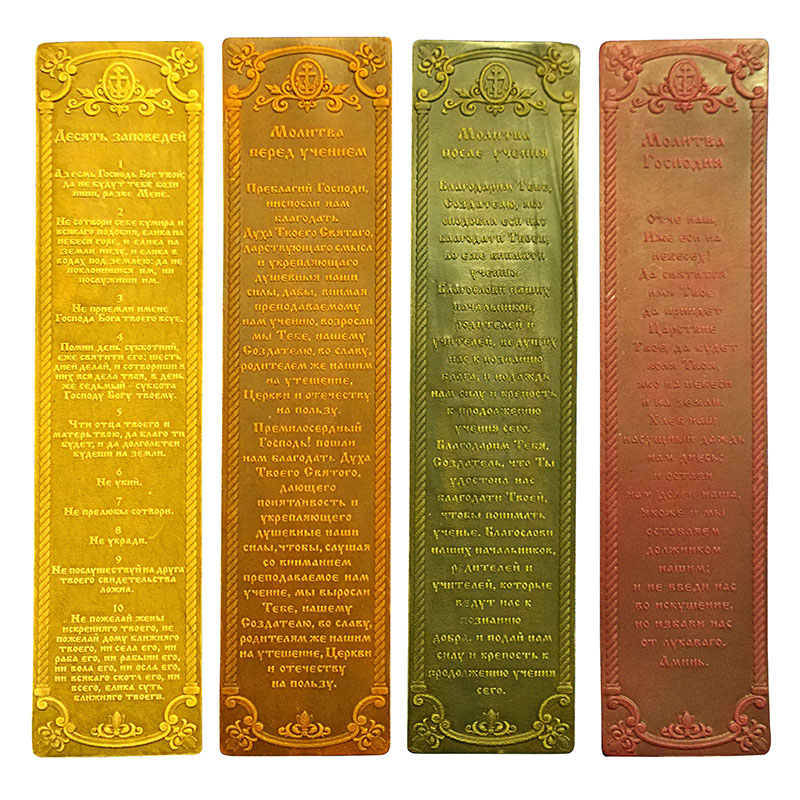 Десять заповедей
1
Аз есмь Господь Бог твой;
да не будут тебе бози
иния, разве Мене.
2
Не сотвори себе кумира и
всякаго подобия, елика на
небеси горе, и елика на
земли низу, и елика в
водах под землею: да не
поклонишися им, ни
послужиши им.
3
Не приемли имене
Господа Бога твоего всуе.
4
Помни день субботний,
еже святити его: шесть
дней делай, и сотвориши в
них вся дела твоя, в день
же седьмый - суббота
Господу Богу твоему.
5
Чти отца твоего и
матерь твою, да благо ти
будет, и да долголетен
будеши на земли.
6
Не убий.
7
Не прелюбы сотвори.
8
Не укради.
9
Не послушествуй на друга
твоего свидетельства
ложна.
10
Не пожелай жены
искренняго твоего, не
пожелай дому ближняго
твоего, ни села его, ни
раба его, ни рабыни его,
ни вола его, ни осла его,
ни всякаго скота его, ни
всего, елика суть
ближняго твоего.
Молитва
перед учением
Преблагий Господи,
ниспосли нам
благодать
Духа Твоего Святаго,
дарствующаго смысл
и укрепляющаго
душевныя наши
силы, дабы, внимая
преподаваемому
нам учению, возросли
мы Тебе, нашему
Создателю, во славу,
родителем же нашим
на утешение,
Церкви и отечеству
на пользу.
Премилосердный
Господь! пошли
нам благодать Духа
Твоего Святого,
дающего
понятливость и
укрепляющего
душевные наши
силы, чтобы, слушая
со вниманием
преподаваемое нам
учение, мы выросли
Тебе, нашему
Создателю, во славу,
родителям же нашим
на утешение, Церкви
и отечеству
на пользу.
Молитва
после учения
Благодарим Тебе,
Создателю, яко
сподобил еси нас
благодати Твоея,
во еже внимати
учению
Благослови наших
начальников,
родителей и
учителей, ведущих
нас к познанию
блага, и подаждь
нам силу и крепость
к продолжению
учения сего.
Благодарим Тебя,
Создатель, что Ты
удостоил нас
благодати Твоей,
чтобы понимать
ученье. Благослови
наших начальников,
родителей и
учителей, которые
ведут нас к
познанию
добра, и подай нам
силу и крепость к
продолжению учения
сего.
Молитва
Господня
Отче наш,
Иже еси на
небесех!
Да святится
имя Твое
да приидет
Царствие
Твое, да будет
воля Твоя,
яко на небеси
и на земли.
Хлеб наш
насущный даждь
нам днесь;
и остави
нам долги наша,
якоже и мы
оставляем
должником
нашим;
и не введи нас
во искушение,
но избави нас
от лукаваго.
Аминь.